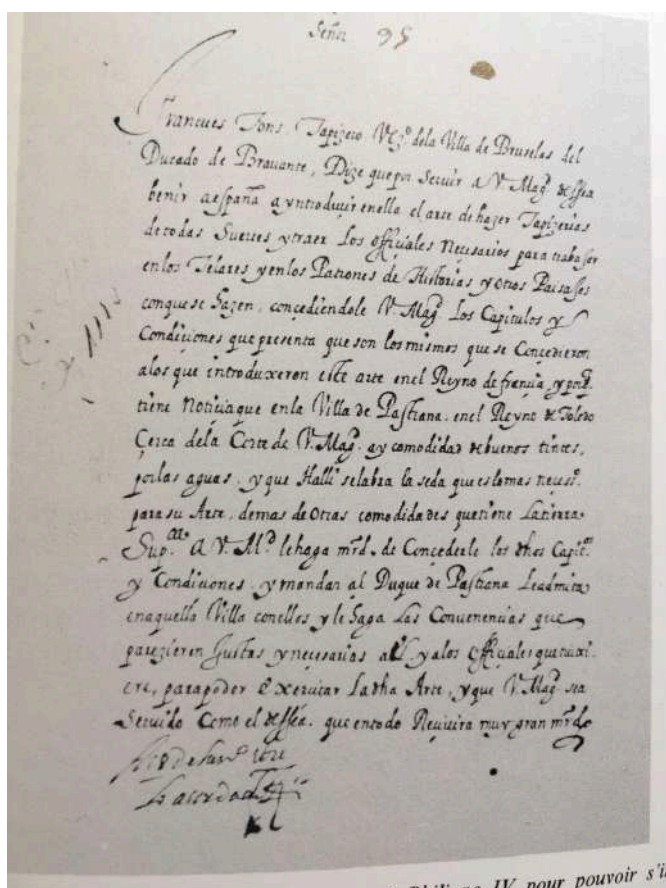 Señor 95
Francues Tons. Tapizero Vezº. dela Villa de Bruselas del
Ducado de Bravante, Dize que por Servir a V. Magᵈ. dessea
benir a españa a yntroducir en ella el arte de hazer Tapizerias
de todas Suertes y traer Los officiales Necesarios para trabajar
en los Telares y en los Patrones de Historias y otros Paisajes
conque se hazen, concediendole V. Magᵈ. Los Capitulos y
Condiciones que presenta que son los mismos que se Concedieron
alos que introduxeron este arte en el Reyno de francia, y porq̃.
tiene Noticia que en la Villa de Pastrana. en el Reyno de Toledo
Cerca dela Corte de V. Magᵈ. ay comodidad de buenos tintes,
por las aguas. y que Halli se labra la seda que es lo mas necessº.
para su Arte, demas de otras comodidades que tiene La tierra.
Supᶜᵃ. A V. Mᵈ. le haga mrd. de Concederle los dhos Capitᵒˢ.
y Condiciones y mandar al Duque de Pastrana Le admita
en aquella Villa con ellos y le haga Las Convenencias que
parezieren Justas y necesarias a el y alos officiales que traxi
ere, para poder exercitar La dha Arte, y que V. Magᵈ. sea
Servido Como el dessea. que en todo Recivira muy gran mrd
1621
Philippe IV pour pouvoir s'i